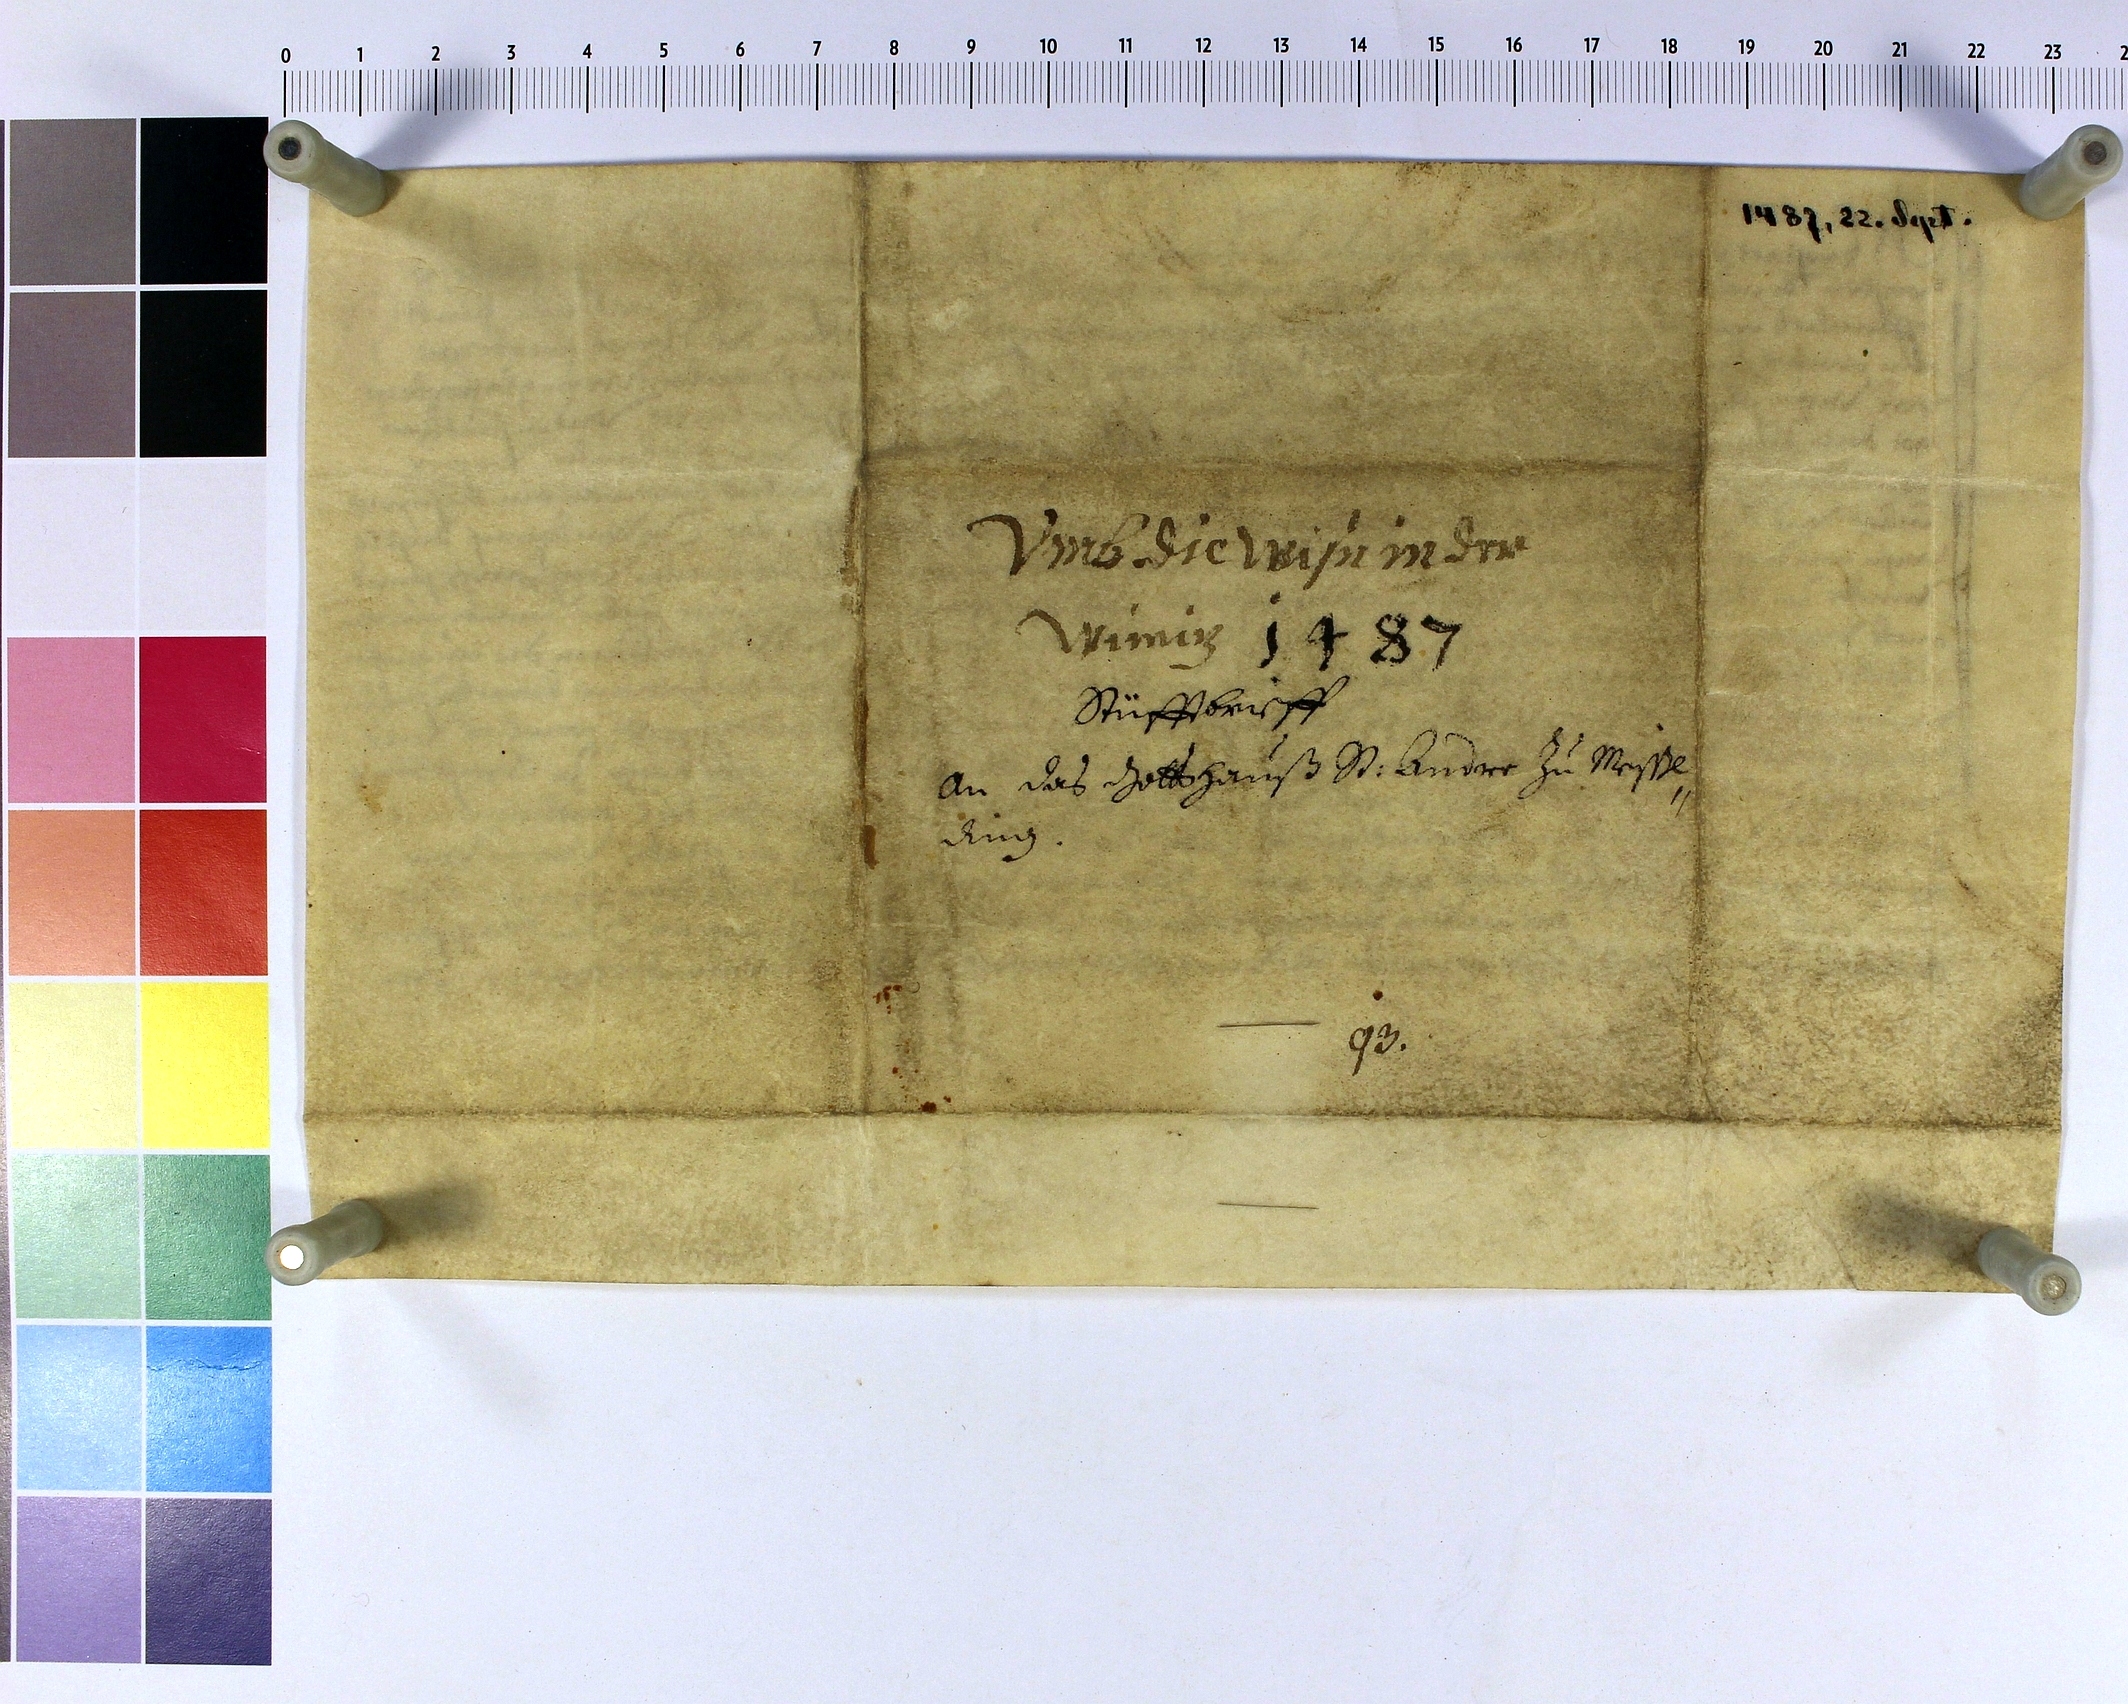 0 1 2 3 4 5 6 7 8 9 10 11 12 13 14 15 16 17 18 19 20 21 22 23 2
1487, 22. Sept.
Vmb die wisn in der
Wimitz 1487
Stüfftbrieff
An das Gottshauß St: Andree zu Meisel„
ding.
93.